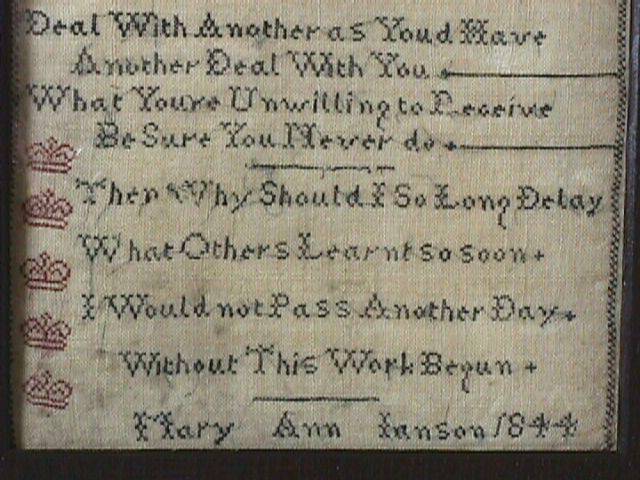 Deal With Another as Youd Have
Another Deal With You
What Youre Unwilling to Receive
Be Sure You Never do
Then Why Should I So Long Delay
What Others Learnt so soon
I Would not Pass Another Day
Without This Work Begun
Mary Ann Ianson 1844